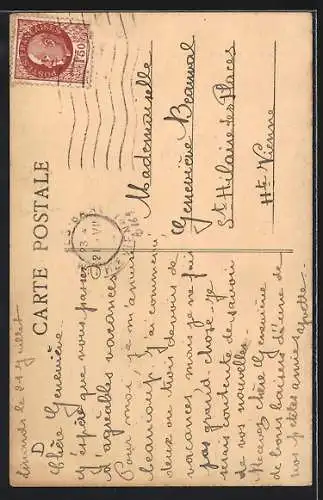 POSTES FRANCAISES
1F50
CARTE POSTALE
D
Mademoiselle
Geneviève Beauval
St Hilaire des Places
Hte Vienne
le 21 Juillet
Chère Geneviève.
J'espère que vous passez
d'agréables vacances.
Pour moi, je m'amuse
beaucoup j'ai commencé
deux ou trois devoirs de
vacances mais je ne fais
pas grand-chose. Je
serais contente de savoir
de vos nouvelles.
Recevez chère Geneviève
de bons baisers d'une de
vos petites amies